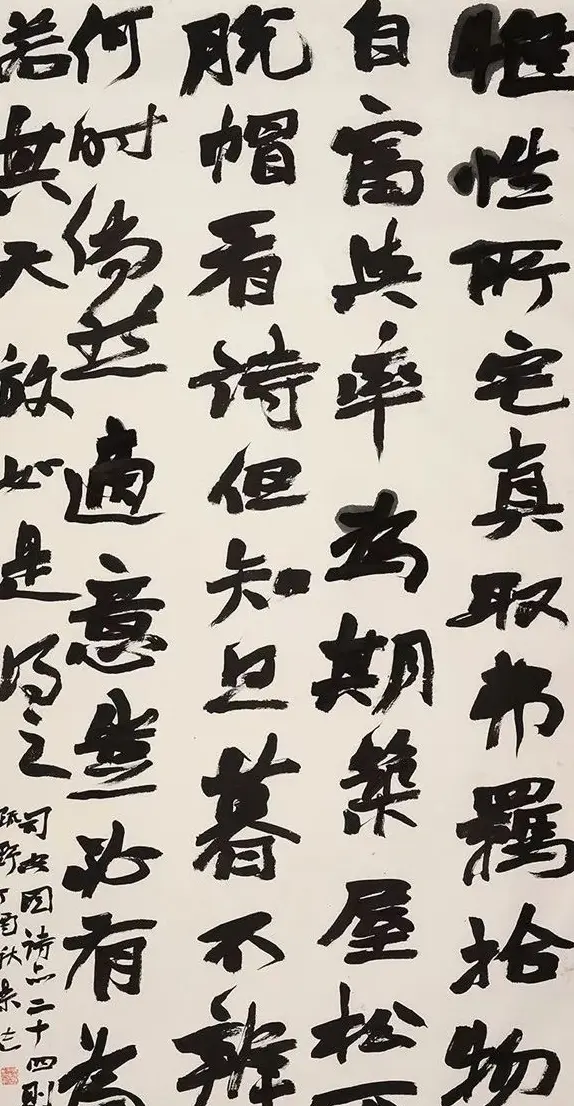 惟性所宅真取弗羈拾物
自富與率為期築屋松下
脱帽看詩但知旦暮不辨
何时倘然適意豈必有為
若其天放如是得之
司空图詩品二十四則
疏野丁酉秋